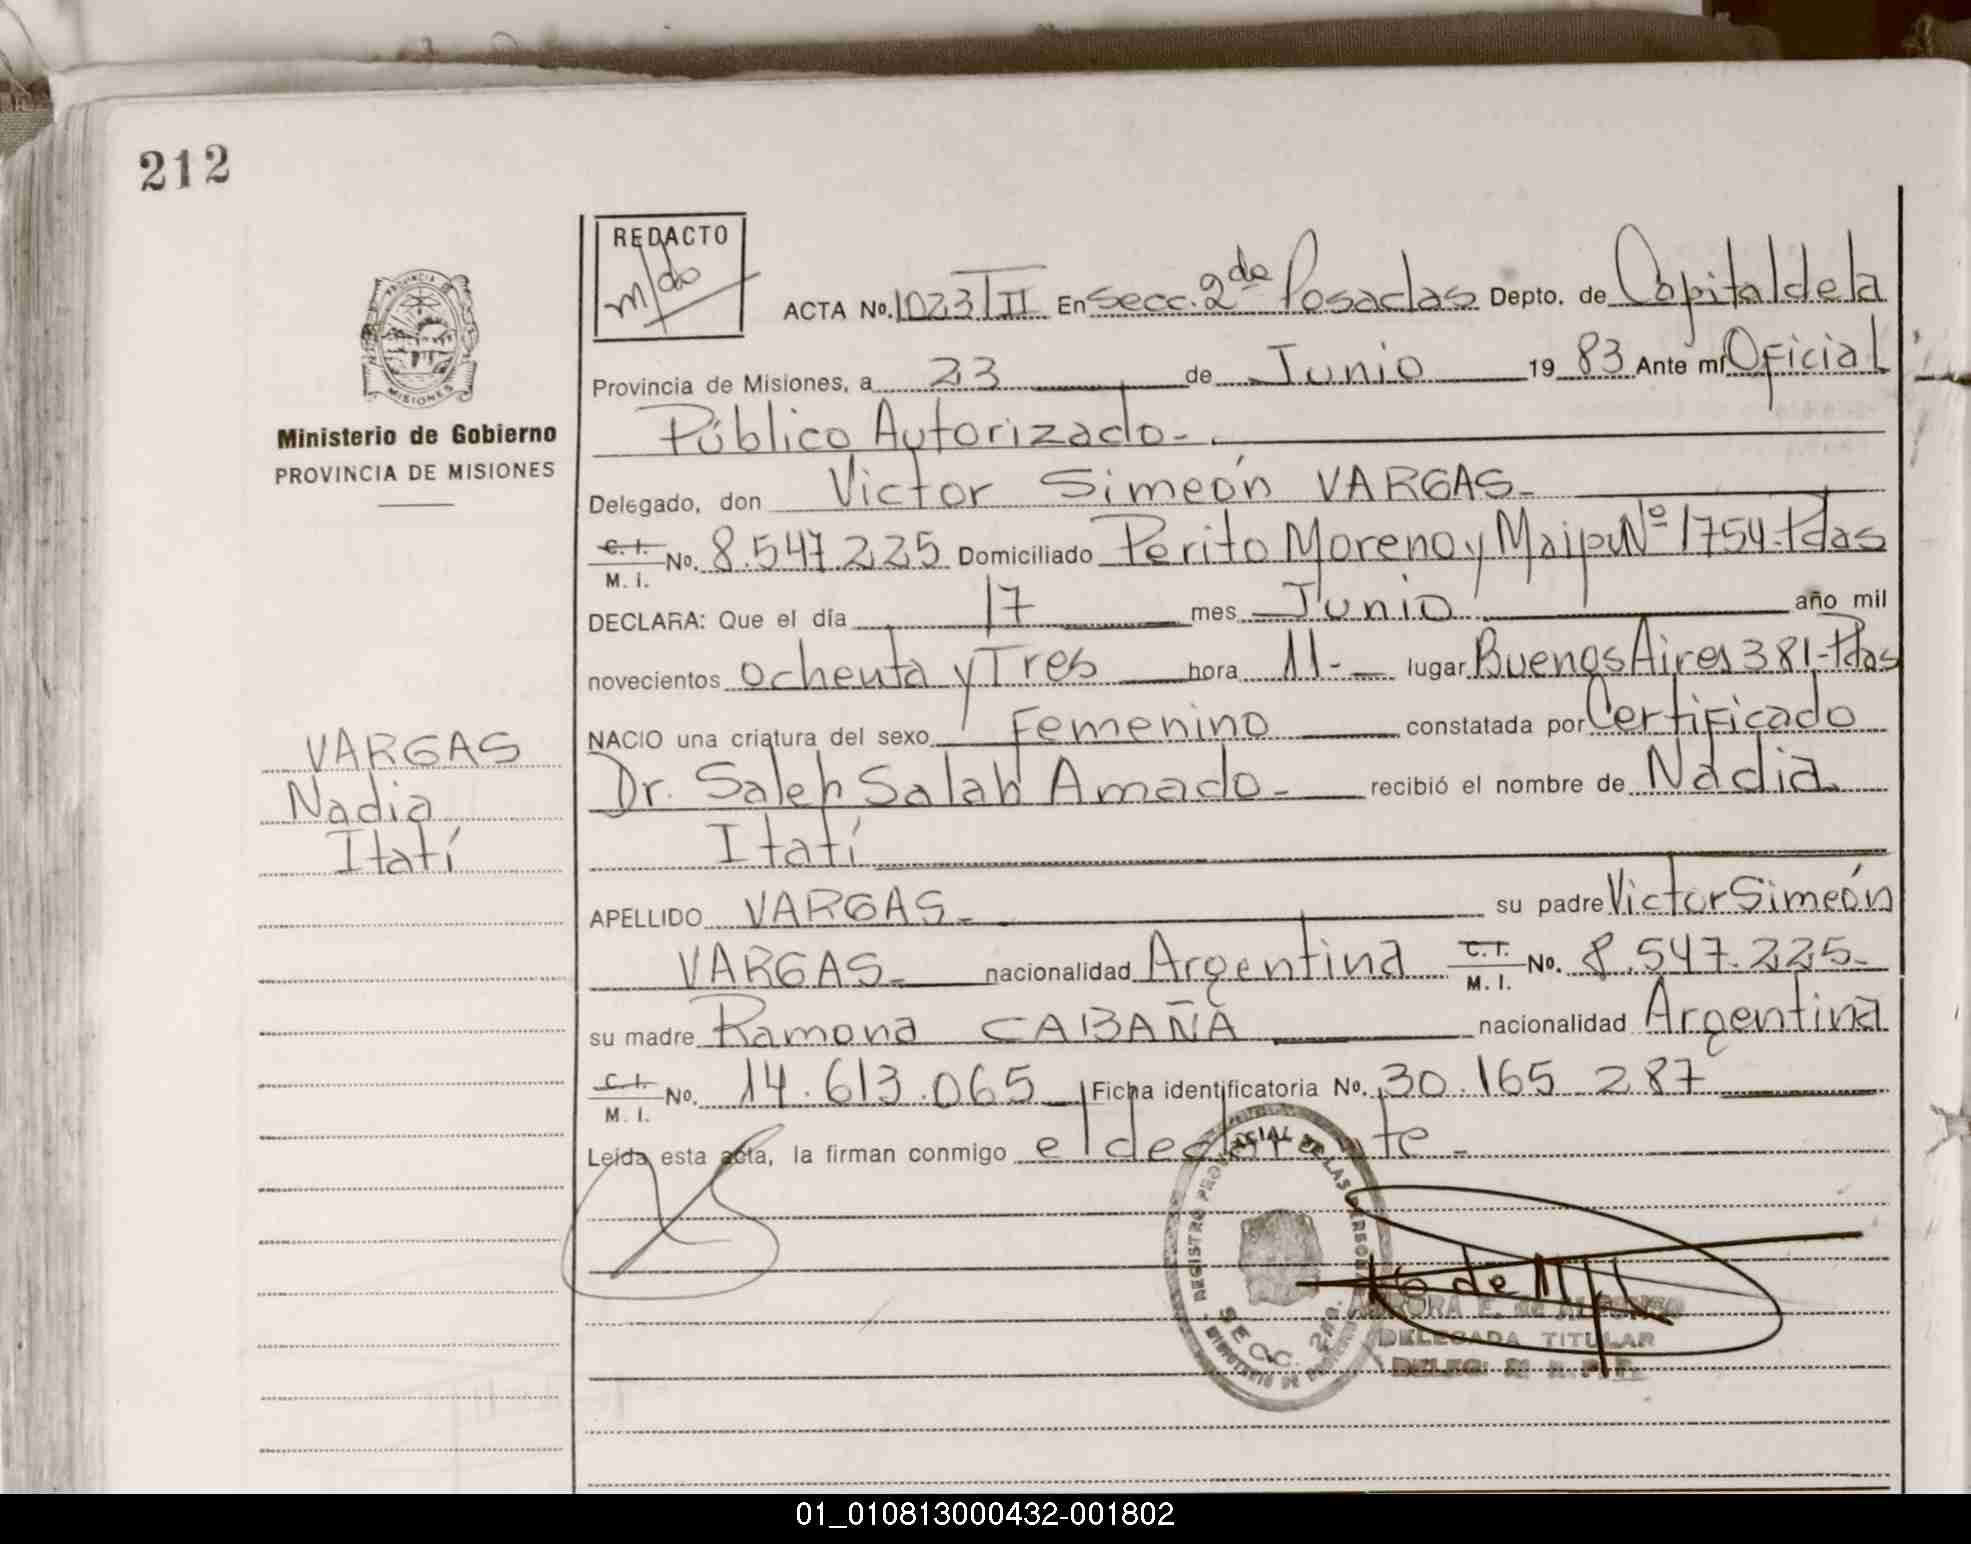 212
REDACTO
m/do
ACTA No. 1023/II En Secc. 2da Posadas Depto. de Capital de la
PROVINCIA DE
MISIONES
Provincia de Misiones, a 23 de Junio 1983 Ante mí Oficial
Ministerio de Gobierno
PROVINCIA DE MISIONES
Público Autorizado-.
Delegado, don Victor Simeón VARGAS-
C. I. M. I. No. 8.547.225 Domiciliado Perito Moreno y Maipu Nº 1754-Pdas
DECLARA: Que el día 17 mes Junio año mil
novecientos ochenta y Tres hora 11.- lugar Buenos Aires 381-Pdas
NACIO una criatura del sexo Femenino constatada por Certificado
VARGAS
Nadia
Itatí
Dr. Saleh Salah Amado- recibió el nombre de Nadia
Itatí
APELLIDO VARGAS- su padre Victor Simeón
VARGAS- nacionalidad Argentina C. I. M. I. No. 8.547.225-
su madre Ramona CABAÑA nacionalidad Argentina
C. I. M. I. No. 14.613.065 Ficha identificatoria No. 30.165.287
Leída esta acta, la firman conmigo el declarante-
REGISTRO PROVINCIAL DE LAS PERSONAS
SECC. 2da.
DELEGADA TITULAR
01_010813000432-001802